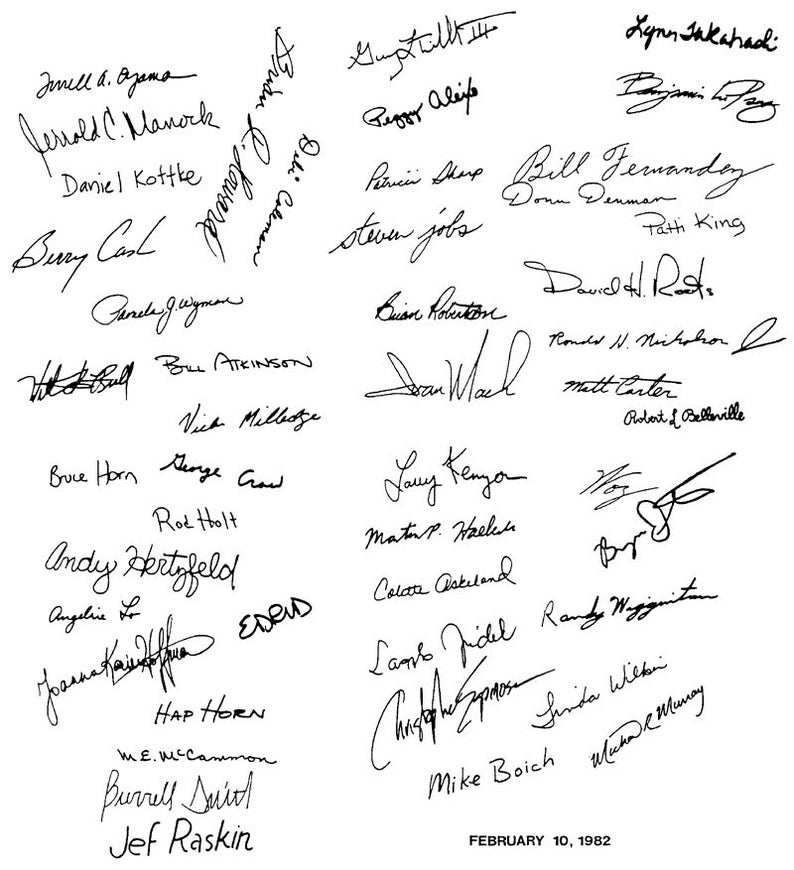 Terrell A. Oyama
Jerrold C. Manock
Daniel Kottke
Brian R. Howard
Debi Coleman
Berry Cash
Pamela J. Wyman
Bill Atkinson
Vicki Milledge
Bruce Horn
George Crow
Rod Holt
Andy Hertzfeld
Angeline Lo
Joanna Karin Hoffman
Hap Horn
M.E. McCammon
Burrell Smith
Jef Raskin
III
Peggy Alexio
Patricia Sharp
Steven Jobs
Brian Robertson
Ivan Mach
Larry Kenyon
Martin P. Haeberli
Colette Askeland
Laszlo Zidek
Christopher Espinosa
Mike Boich
Lynn Takahashi
Benjamin
Bill Fernandez
Donn Denman
Patti King
David H. Roots
Ronald H. Nicholson Jr
Matt Carter
Robert L Belleville
Woz
Bryan
Randy Wigginton
Linda Wilkin
Michael R Murray
FEBRUARY 10, 1982